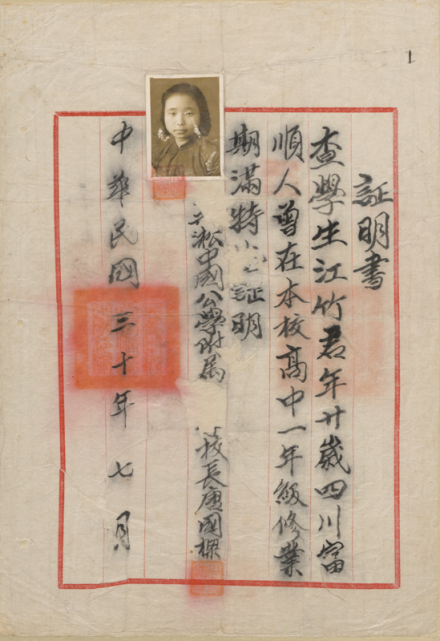 1
証明書
查學生江竹君年廿歲四川富
順人曾在本校高中一年級修業
期滿特此証明
淞中國公學附属
校長唐國樑
中華民國三十年七月